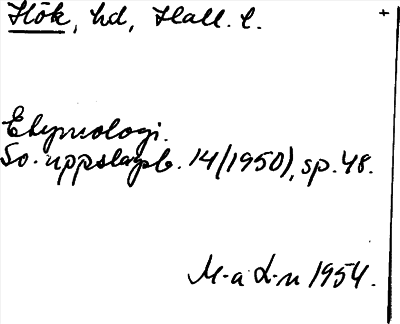 Hök, hd, Hall. l. +
Etymologi.
So. uppslagsb. 14 (1950), sp. 48.
M-a L-n 1954.